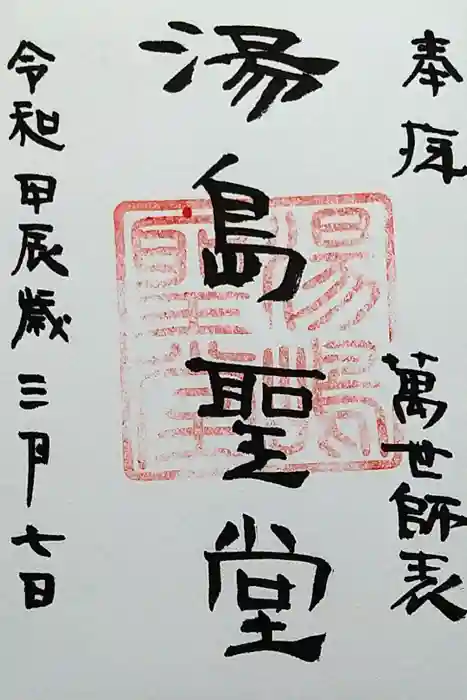 奉拜
萬世師表
湯島聖堂
湯島聖堂
令和甲辰歳三月七日